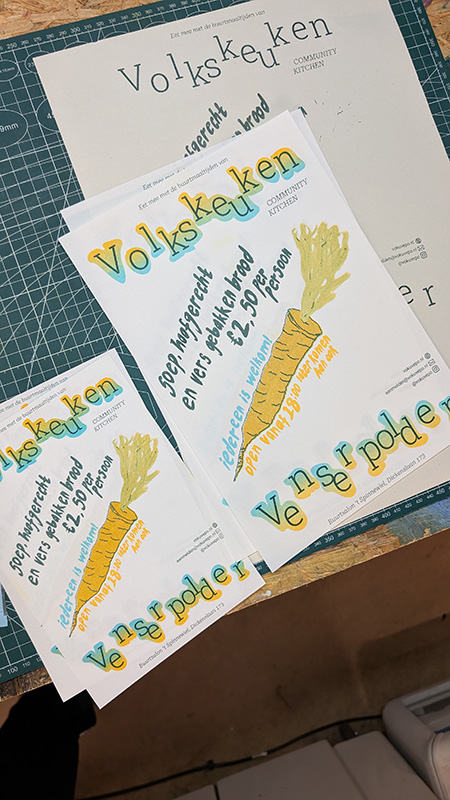 Eet mee met de buurtmaaltijden van
Volkskeuken
COMMUNITY
KITCHEN
Eet mee met de buurtmaaltijden van
Volkskeuken
COMMUNITY
KITCHEN
Soep, hoofgerecht
en vers gebakken brood
€2,50 per
persoon
ieder-een is welkom!
open vanaf 18:00
vokuvepo.nl
aanmelden@vokuvepo.nl
@vokuvepo
Venserpolder
Buurtsalon 't Spinnewiel, Dickenslaan 173
Eet mee met de buurtmaaltijden van
Volkskeuken
COMMUNITY
KITCHEN
Soep, hoofgerecht
en vers gebakken brood
€2,50 per
persoon
ieder-een is welkom!
open vanaf 18:00
vokuvepo.nl
aanmelden@vokuvepo.nl
@vokuvepo
Venserpolder
Buurtsalon 't Spinnewiel, Dickenslaan 173